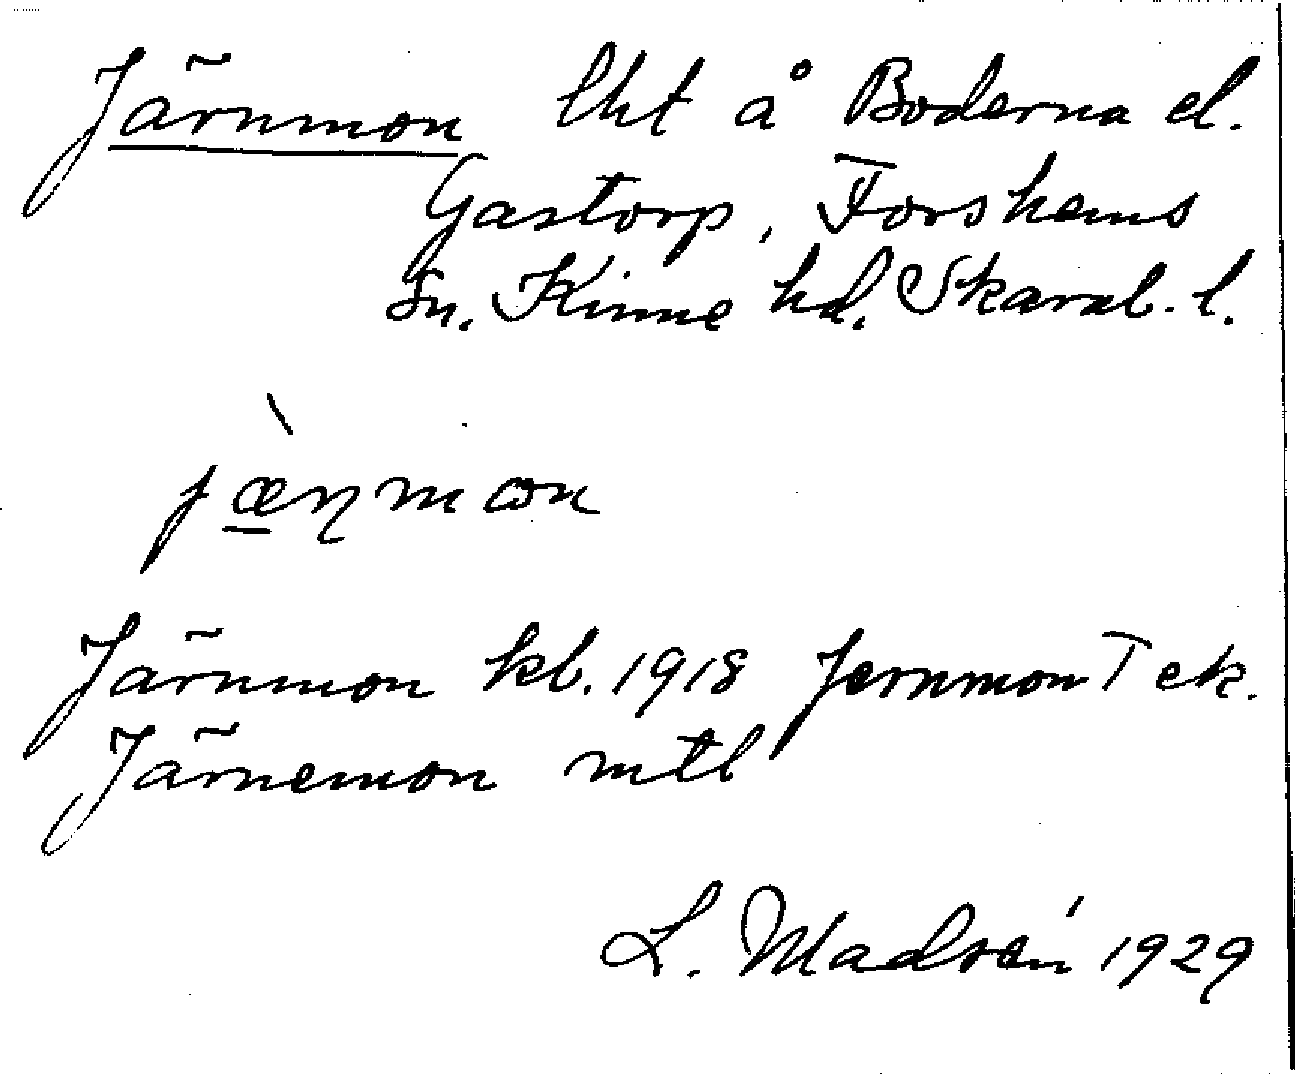 Järnmon lht å Boderna el.
Gastorp, Forshems
Sn. Kinne hd. Skarab. l.
jæ̠̀ŋmɷn
Järnmon kb. 1918 Jernmon T ek.
Järnemon mtl
L. Madsén 1929